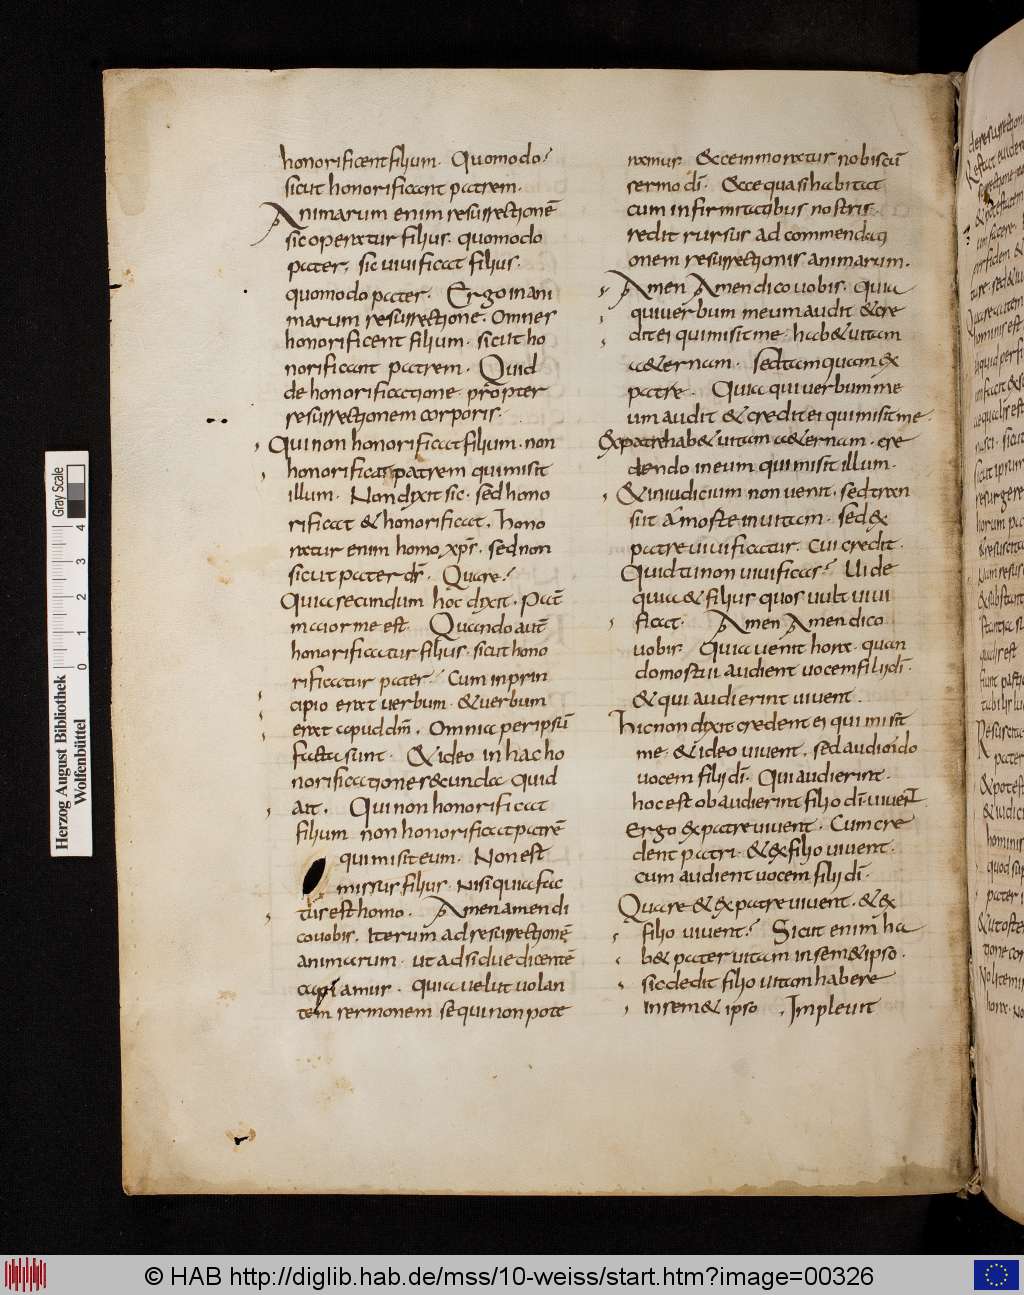 honorificent filium. Quomodo?
sicut honorificant patrem.
Animarum enim resurrectionē
sic operatur filius. quomodo
pater, sic uiuificat filius.
quomodo pater. Ergo in ani
marum resurrectione. Omnes
honorificent filium. sicut ho
norificant patrem. Quid
de honorificatione propter
resurrectionem corporis.
Qui non honorificat filium. non
honorificat patrem qui misit
illum. Non dixit sic. sed hono
rificat & honorificat. Hono
ratur enim homo xp̄s. sed non
sicut pater d̄s. Quare?
Quia secundum hoc dixit. Pat̄
maior me est. Quando aut̄
honorificatur filius. sicut hono
rificatur pater? Cum in prin
cipio erat uerbum. & uerbum
erat apud dm̄. Omnia per ipsū
facta sunt. & ideo in hac ho
norificatione secunda quid
ait. Qui non honorificat
filium non honorificat patrē
qui misit eum. Non est
missus filius. nisi quia fac
tus est homo. Amen amen di
co uobis. Iterum ad resurrectionē
animarum. ut adsidue dicentē
capiamur. quia uelut uolan
tem sermonem sequi non pote
ramur. & ecce inmoratur nobiscū
sermo dī. Ecce quasi habitat
cum infirmitatibus nostris.
redit rursus ad commendati
onem resurrectionis animarum.
Amen Amen dico uobis. quia
qui uerbum meum audit & cre
dit ei qui misit me. hab& uitam
a&ernam. Sed tamquam ex
patre. Quia qui uerbum me
um audit & credit ei qui misit me.
Ex patre hab& uitam a&ernam. cre
dendo in eum qui misit illum.
& in iudicium non uenit. sed tran
siit a morte in uitam. Sed ex
patre uiuificatur. cui credit.
Quid tu non uiuificas? Uide
quia & filius quos uult uiui
ficat. Amen Amen dico
uobis. Quia uenit hora. quan
do mortui audient uocem filii dī.
& qui audierint uiuent.
Hic non dixit credent ei qui misit
me. & ideo uiuent. sed audiendo
uocem filii dī. Qui audierint.
hoc est obaudierint filio dī uiuent.
Ergo & ex patre uiuent. Cum cre
dent patri. & ex filio uiuent.
cum audient uocem filii dī.
Quare & ex patre uiuent. & ex
filio uiuent? Sicut enim ha
b& pater uitam in sem&ipso.
sic dedit filio uitam habere
in sem&ipso. Impleuit
Gray Scale
0 1 2 3 4
Herzog August Bibliothek
Wolfenbüttel
© HAB http://diglib.hab.de/mss/10-weiss/start.htm?image=00326